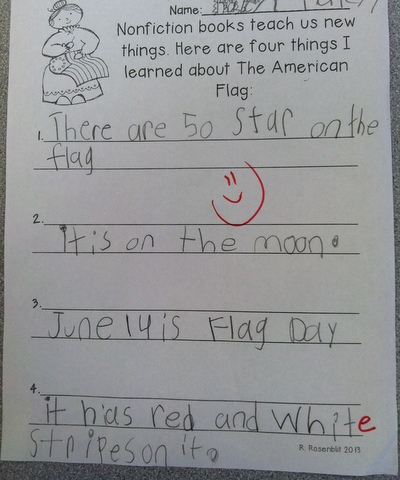 Name:
Nonfiction books teach us new
things. Here are four things I
learned about The American
Flag:
1. There are 50 star on the
flag
2. It is on the moon.
3. June 14 is Flag Day
4. it has red and white
stripes on it.
R. Rosenblit 2013